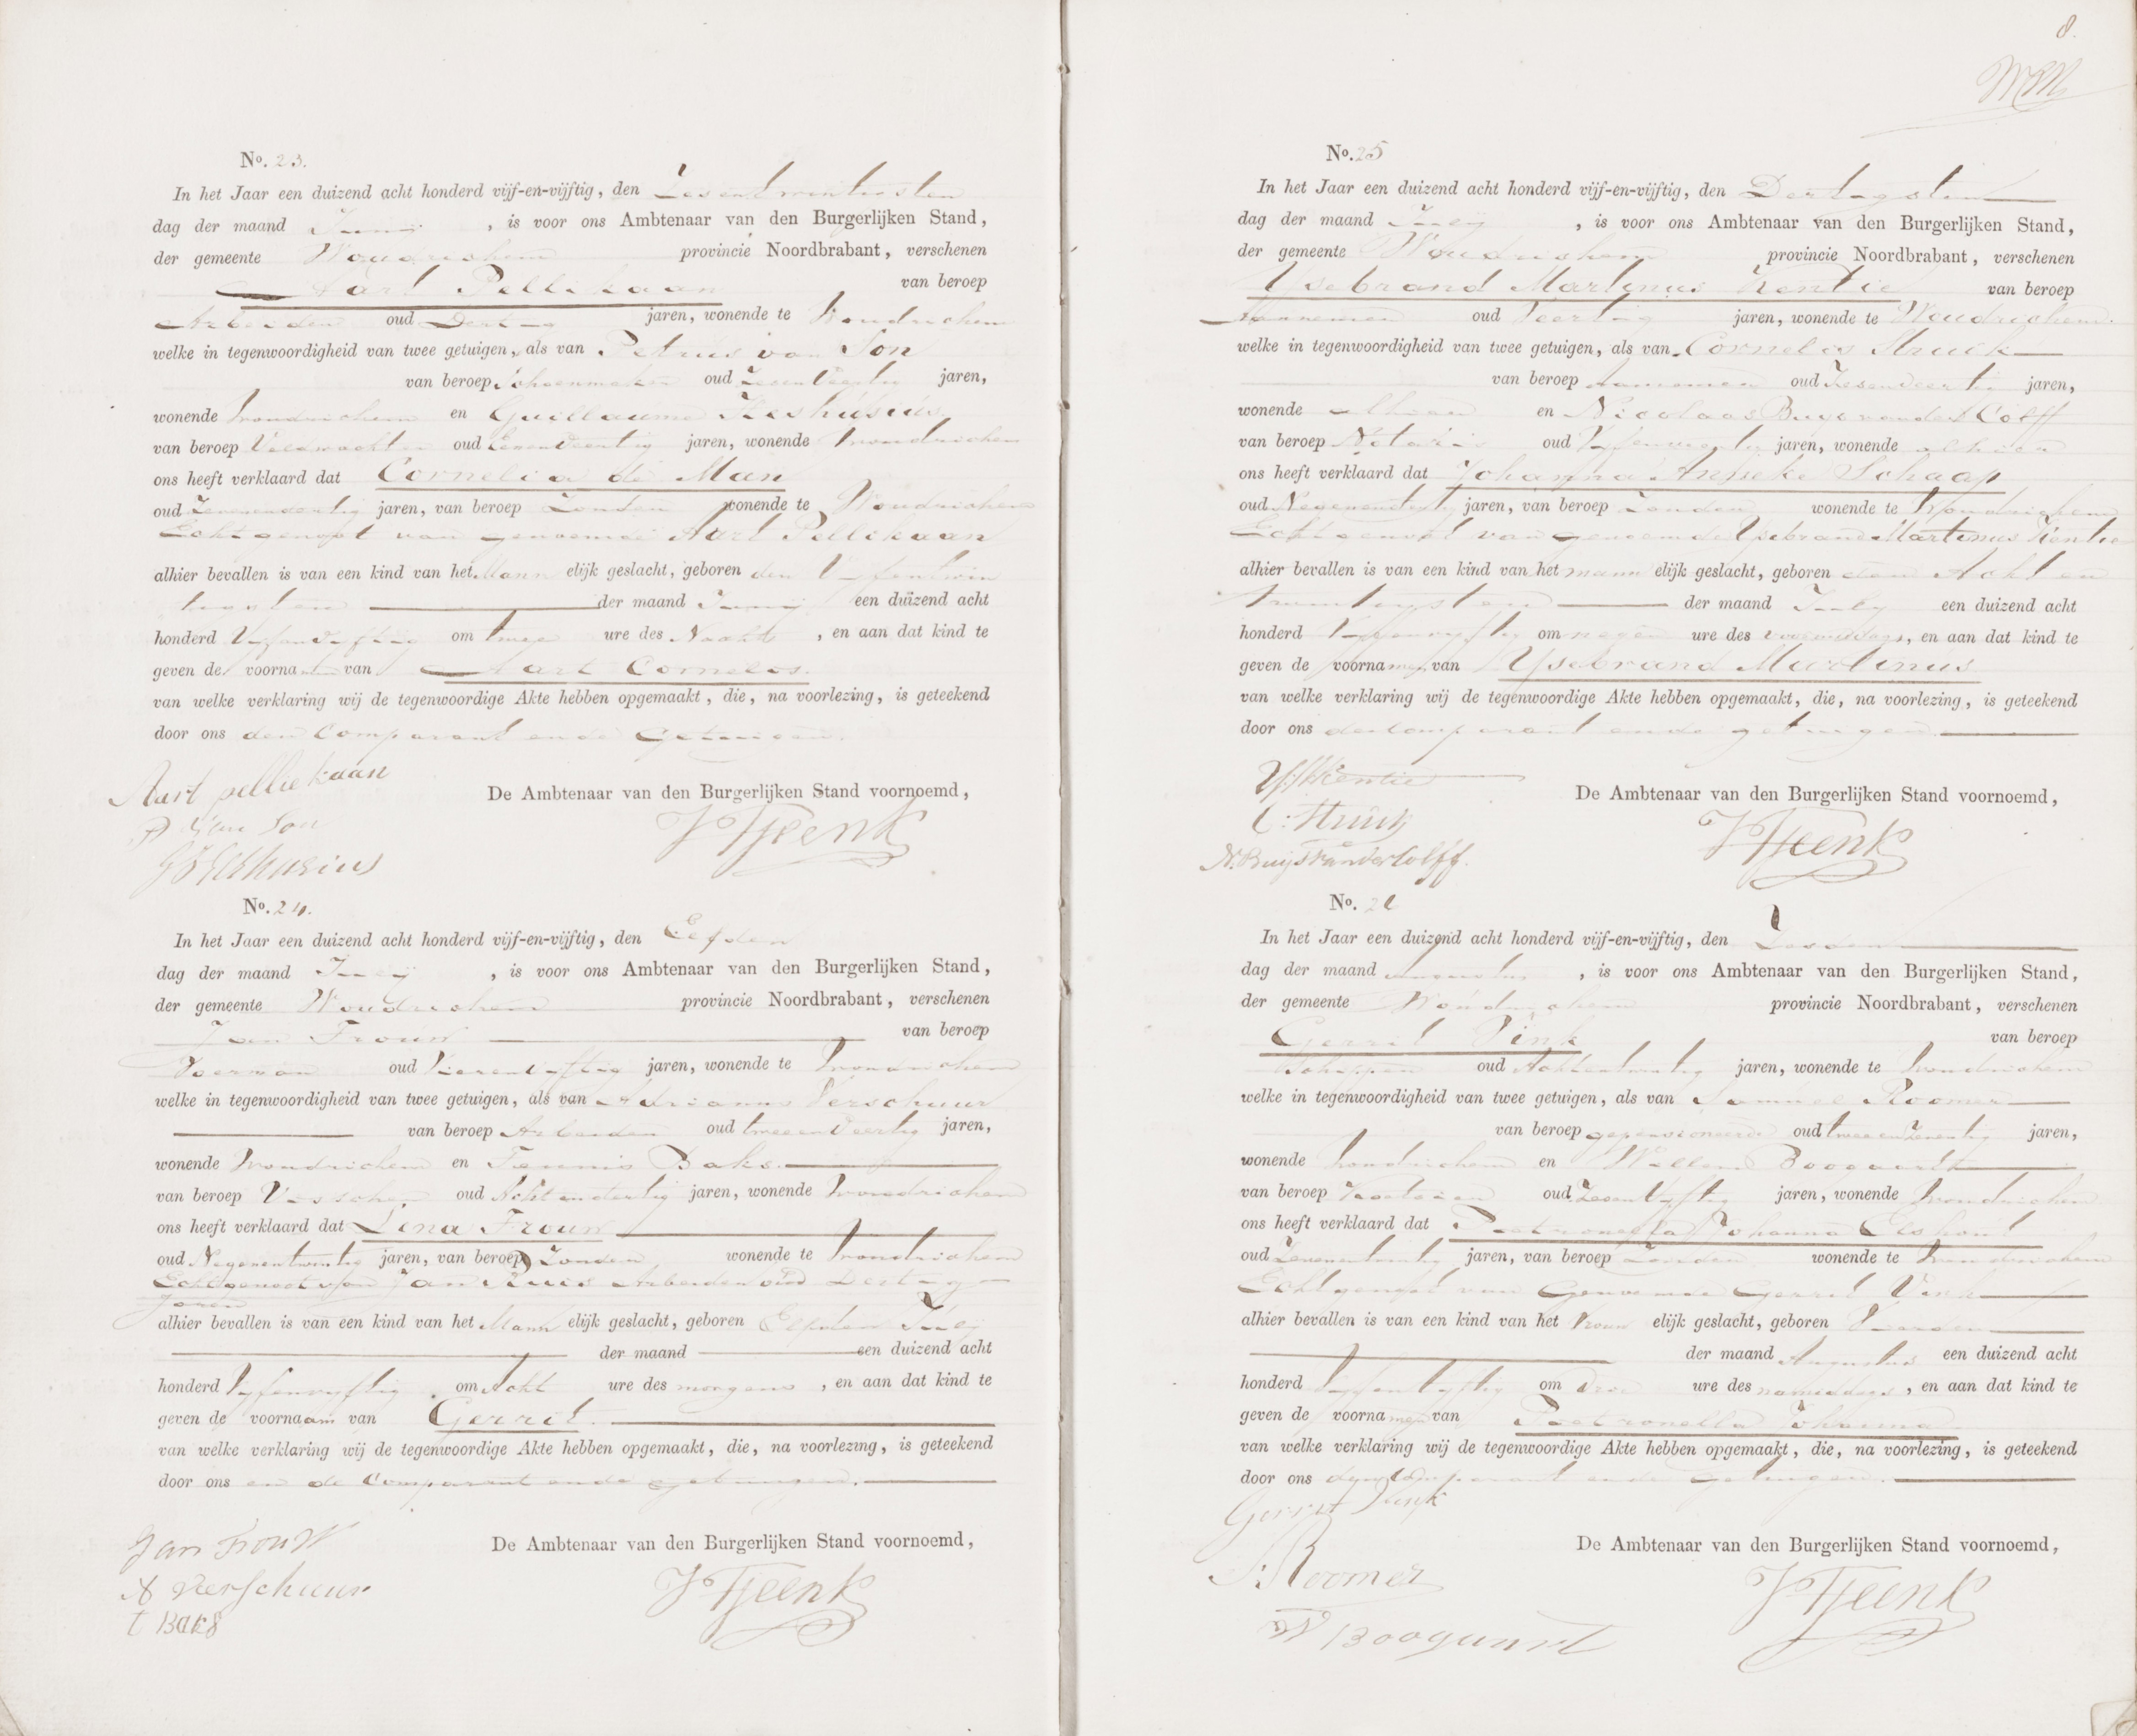 No. 23.
In het Jaar een duizend acht honderd vijf-en-vijftig, den Zesentwintigsten
dag der maand Junij, is voor ons Ambtenaar van den Burgerlijken Stand,
der gemeente Woudrichem provincie Noordbrabant, verschenen
Aart Pellikaan van beroep
Arbeider oud Dertig jaren, wonende te Woudrichem
welke in tegenwoordigheid van twee getuigen, als van Petrus van Son
van beroep Schoenmaker oud jaren,
wonende Woudrichem en Guillaume
van beroep Veldwachter oud jaren, wonende Woudrichem
ons heeft verklaard dat Cornelia de Man
oud Zevenendertig jaren, van beroep Zonder wonende te Woudrichem
Echtgenoot van genoemde Aart Pellikaan
alhier bevallen is van een kind van het Mann elijk geslacht, geboren den Vijfentwin
tigsten der maand Junij een duizend acht
honderd Vijfenvijftig om twee ure des Nachts, en aan dat kind te
geven de voornamen van Aart Cornelis.
van welke verklaring wij de tegenwoordige Akte hebben opgemaakt, die, na voorlezing, is geteekend
door ons den Comparant en de Getuigen.
Aart pelliekaan
De Ambtenaar van den Burgerlijken Stand voornoemd,
P van Son
JTjeenk
No. 24.
In het Jaar een duizend acht honderd vijf-en-vijftig, den Elfden
dag der maand Julij, is voor ons Ambtenaar van den Burgerlijken Stand,
der gemeente Woudrichem provincie Noordbrabant, verschenen
Jan Trouw van beroep
Voerman oud Vierenvijftig jaren, wonende te Woudrichem
welke in tegenwoordigheid van twee getuigen, als van Adrianus Verschuur
van beroep Arbeider oud tweeenveertig jaren,
wonende Woudrichem en Teunis Baks.
van beroep Visscher oud Achtendertig jaren, wonende Woudrichem
ons heeft verklaard dat Lena Trouw
oud Negenentwintig jaren, van beroep Zonder wonende te Woudrichem
Echtgenoot van Jan Arbeider oud Dertig
jaren
alhier bevallen is van een kind van het Mann elijk geslacht, geboren Elfden Julij
der maand een duizend acht
honderd Vijfenvijftig om Acht ure des morgens, en aan dat kind te
geven de voornaam van Gerrit.
van welke verklaring wij de tegenwoordige Akte hebben opgemaakt, die, na voorlezing, is geteekend
door ons en de Comparant en de getuigen.
Jan Trouw
De Ambtenaar van den Burgerlijken Stand voornoemd,
A Verschuur
T Baks
JTjeenk
8.
No. 25
In het Jaar een duizend acht honderd vijf-en-vijftig, den Dertigsten
dag der maand Julij, is voor ons Ambtenaar van den Burgerlijken Stand,
der gemeente Woudrichem provincie Noordbrabant, verschenen
Ysebrand Martinus Kentie van beroep
Aannemer oud Veertig jaren, wonende te Woudrichem.
welke in tegenwoordigheid van twee getuigen, als van Cornelis Struck
van beroep Aannemer oud Zesenveertig jaren,
wonende Alhier en Nicolaas Buys van der Colff
van beroep Notaris oud jaren, wonende alhier
ons heeft verklaard dat Johanna Anneke Schaap
oud Negenendertig jaren, van beroep Zonder wonende te Woudrichem
Echtgenoot van genoemde Ysebrand Martinus Kentie
alhier bevallen is van een kind van het mann elijk geslacht, geboren den Acht en
twintigsten der maand July een duizend acht
honderd Vijfenvyftig om negen ure des voormiddags, en aan dat kind te
geven de voornamen van Ysebrand Martinus
van welke verklaring wij de tegenwoordige Akte hebben opgemaakt, die, na voorlezing, is geteekend
door ons den Comparant en de getuigen.
De Ambtenaar van den Burgerlijken Stand voornoemd,
N. Buijs van der Colff.
JTjeenk
No. 26
In het Jaar een duizend acht honderd vijf-en-vijftig, den Zesden
dag der maand Augustus, is voor ons Ambtenaar van den Burgerlijken Stand,
der gemeente Woudrichem provincie Noordbrabant, verschenen
Gerrit Vink van beroep
Schipper oud Achtentwintig jaren, wonende te Woudrichem
welke in tegenwoordigheid van twee getuigen, als van Samuel Roomer
van beroep gepensioneerde oud tweeenzeventig jaren,
wonende Woudrichem en Willem Boogaardt
van beroep oud Zesenvyftig jaren, wonende Woudrichem
ons heeft verklaard dat Pieternella Johanna Elshout
oud Zevenentwintig jaren, van beroep Zonder wonende te Woudrichem
Echtgenoot van Genoemde Gerrit Vink
alhier bevallen is van een kind van het Vrouw elijk geslacht, geboren Vierden
der maand Augustus een duizend acht
honderd Vijfenvyftig om Drie ure des namiddags, en aan dat kind te
geven de voornamen van Pietronella Johanna
van welke verklaring wij de tegenwoordige Akte hebben opgemaakt, die, na voorlezing, is geteekend
door ons den Comparant en de getuigen.
Gerrit Vink
De Ambtenaar van den Burgerlijken Stand voornoemd,
S: Roomer
JTjeenk